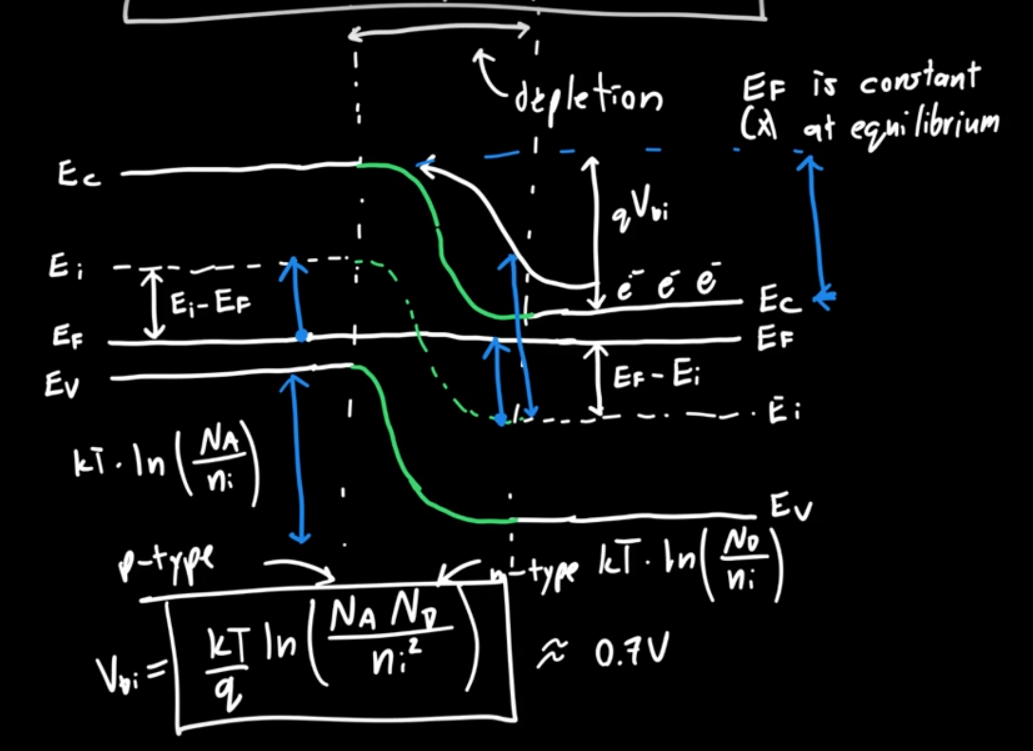 depletion
EF is constant
(x) at equilibrium
Ec
qVbi
Ei
Ei-EF
e⁻ e⁻ e⁻
Ec
EF
EF
Ev
EF-Ei
Ei
kT·ln(NA/ni)
Ev
p-type
n-type kT·ln(ND/ni)
Vbi= kT/q ln(NA ND/ni²) ≈ 0.7V